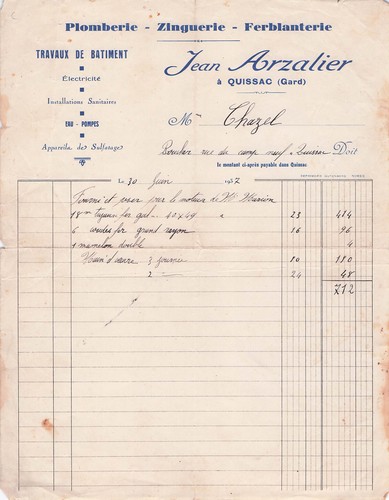 Plomberie - Zinguerie - Ferblanterie
TRAVAUX DE BATIMENT
Électricité
Installations Sanitaires
EAU - POMPES
Appareils des Sulfatages
Jean Arzalier
à QUISSAC (Gard)
Mr Chazel
Boucher rue du camp neuf - Quissac Doit
le montant ci-après payable dans Quissac
Le 30 Juin 1937
Fourni et poser par le moteur de Mr
18m tuyaux fer gal - 40x49 a 23 414
6 coudes fer grand rayon 16 96
1 mamelon double 4
Main d'œuvre 3 journée 180
2 24 48
712